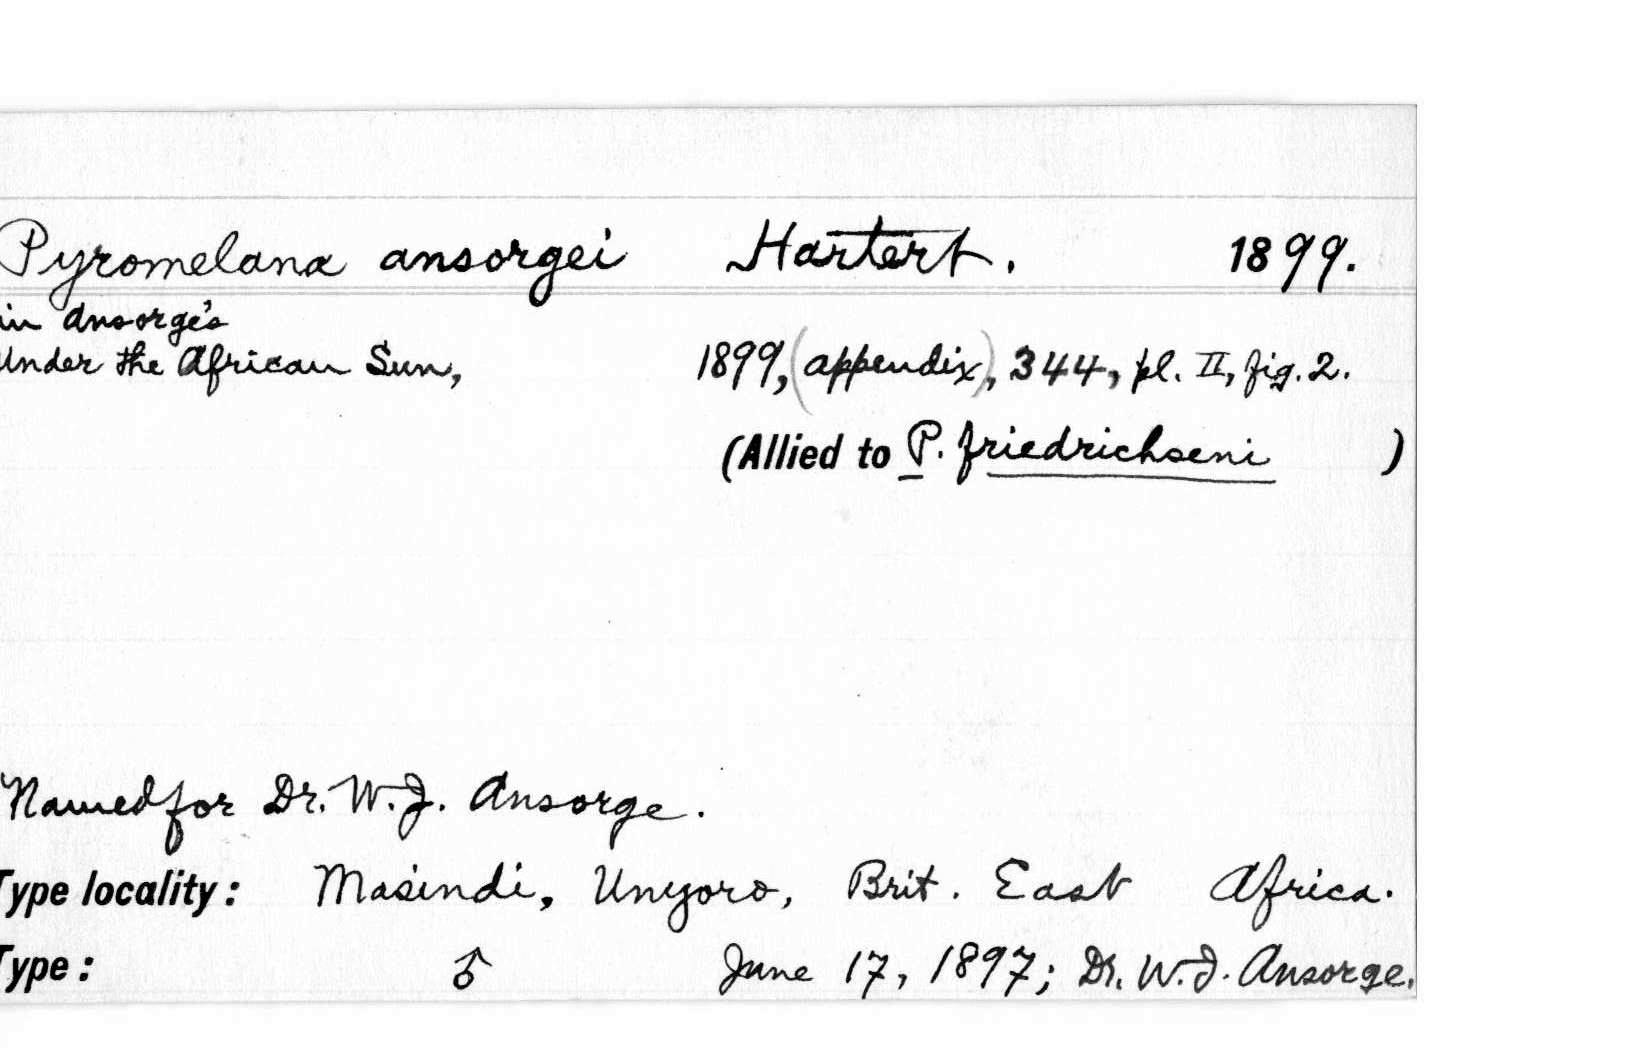 Pyromelana ansorgei Hartert. 1899.
in Ansorge's
Under the African Sun, 1899, (appendix), 344, pl. II, fig. 2.
(Allied to P. friedrichseni )
Named for Dr. W. J. Ansorge.
Type locality: Masindi, Unyoro, Brit. East Africa.
Type: ♂ June 17, 1897; Dr. W. J. Ansorge.